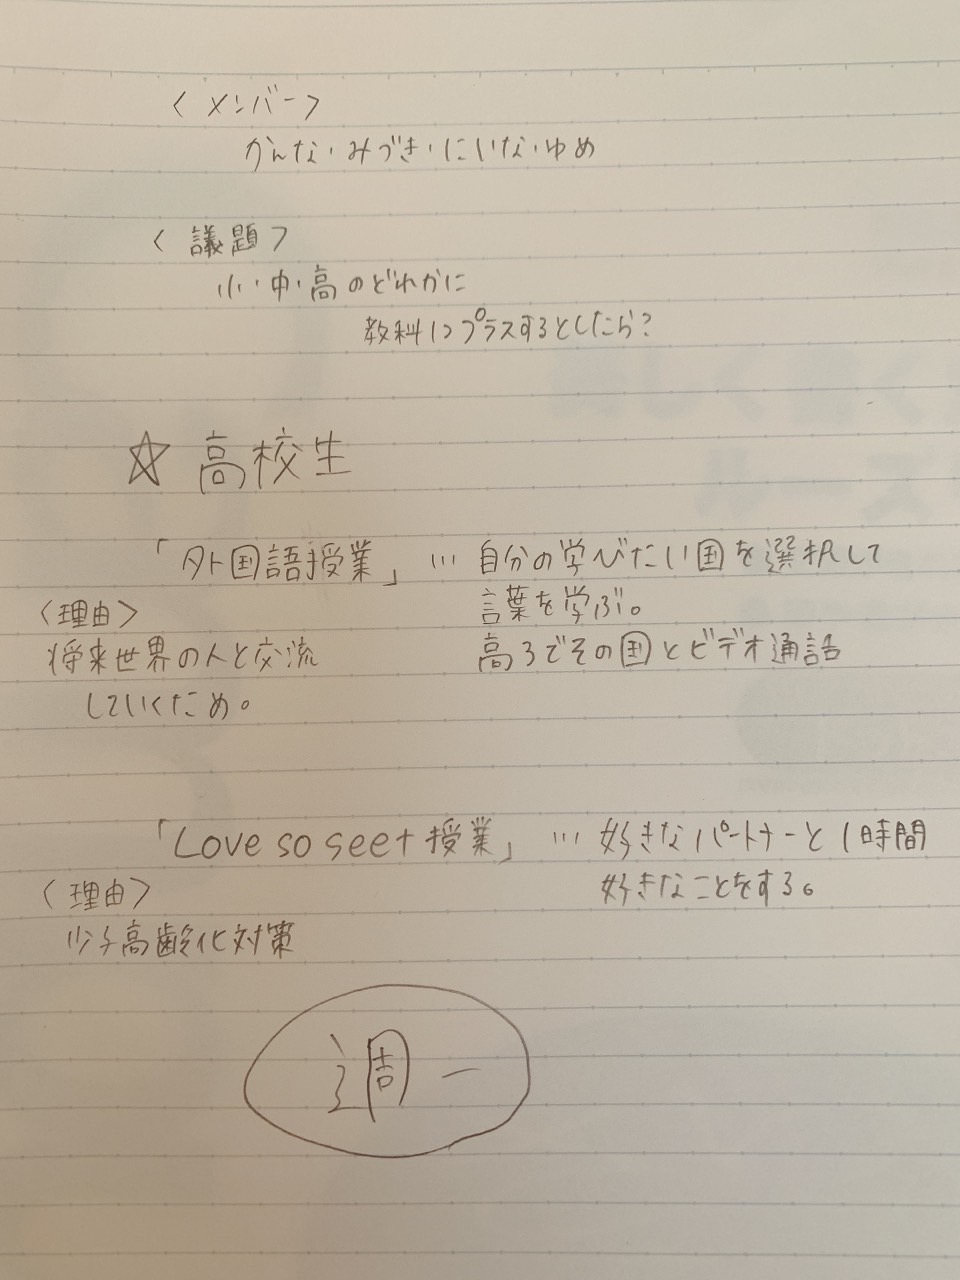 〈メンバー〉
かんな・みづき・にいな・ゆめ
〈議題〉
小・中・高のどれかに
教科1つプラスするとしたら?
☆ 高校生
「外国語授業」… 自分の学びたい国を選択して
言葉を学ぶ。
高3でその国とビデオ通話
〈理由〉
将来世界の人と交流
していくため。
「Love so seet 授業」… 好きなパートナーと1時間
好きなことをする。
〈理由〉
少子高齢化対策
週一